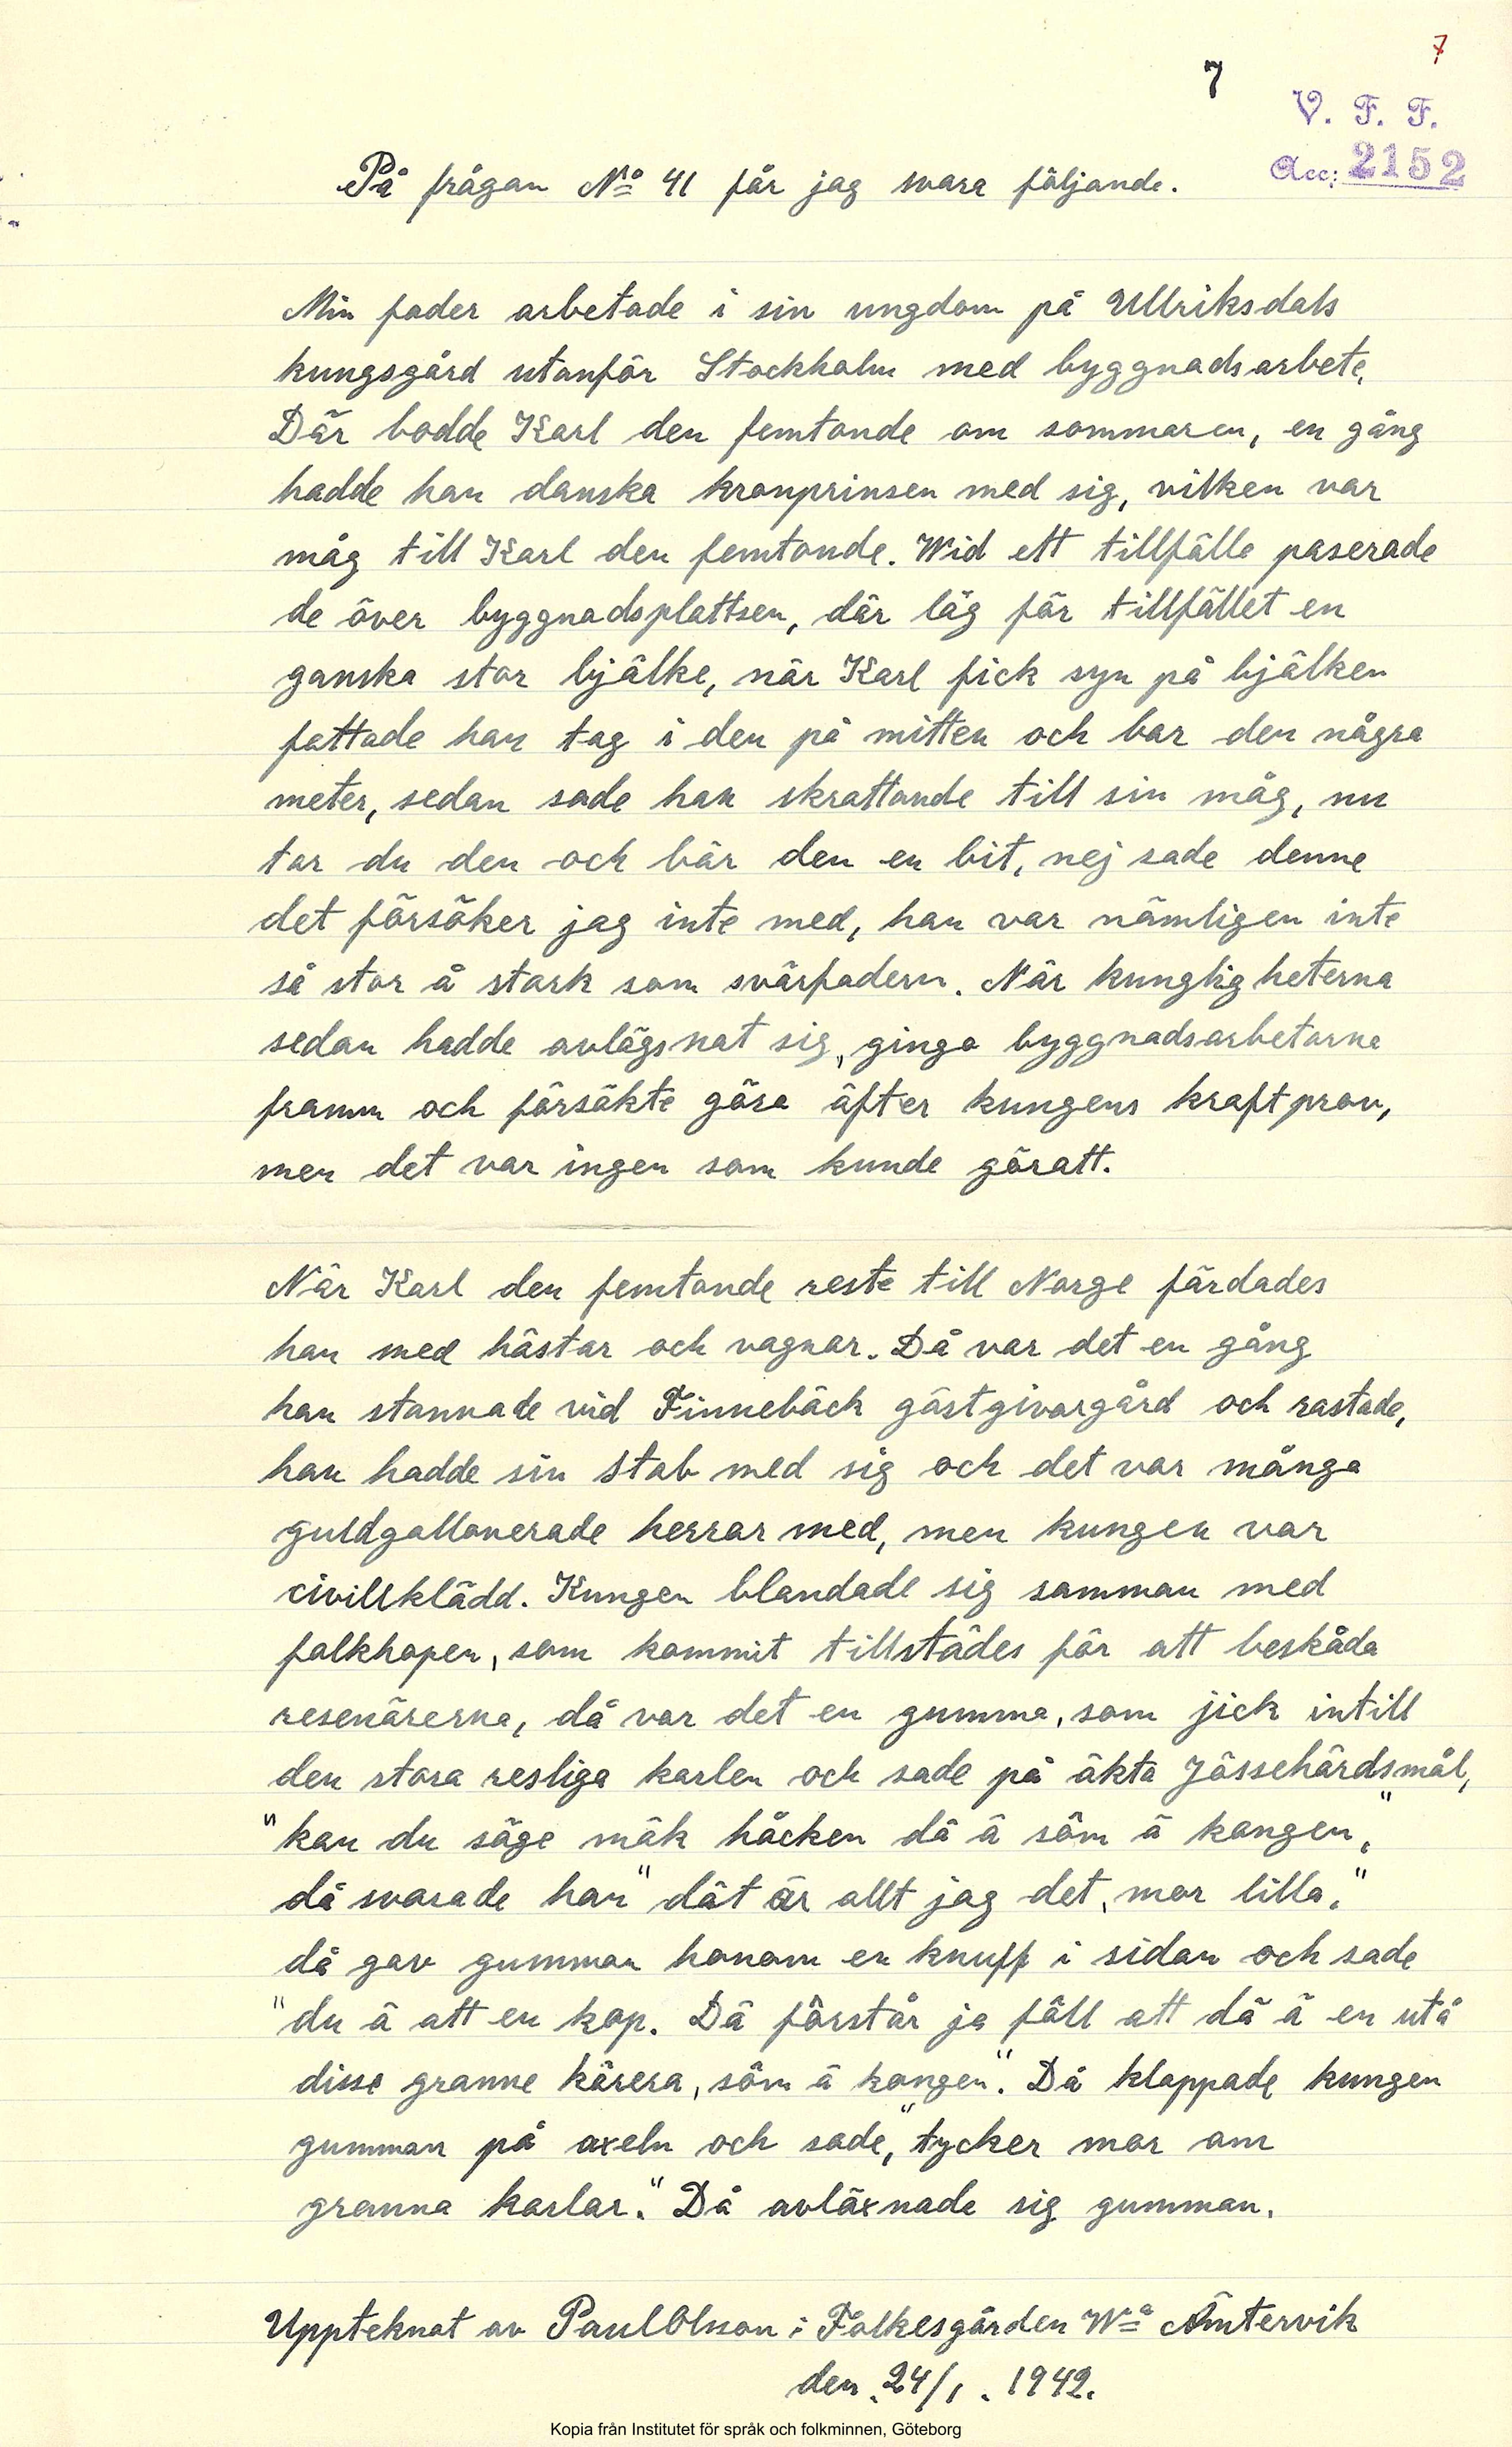 7
7
V. F. F.
Acc: 2152
På frågan No 41 får jag svara följande.
Min fader arbetade i sin ungdom på Ullriksdals
kungsgård utanför Stockholm med byggnadsarbete.
Där bodde Karl den femtonde om sommaren, en gång
hadde han danska kronprinsen med sig, vilken var
måg till Karl den femtonde. Wid ett tillfälle paserade
de över byggnadsplattsen, där låg för tillfället en
ganska stor bjälke, när Karl fick syn på bjälken
fattade han tag i den på mitten och bar den några
meter, sedan sade han skrattande till sin måg, nu
tar du den och bär den en bit, nej sade denne
det försöker jag inte med, han var nämligen inte
så stor å stark som svärfadern. När kungligheterna
sedan hadde avlägsnat sig, gingo byggnadsarbetarna
framm och försökte göra äfter kungens kraftprov,
men det var ingen som kunde göratt.
När Karl den femtonde reste till Norge färdades
han med hästar och vagnar. Då var det en gång
han stannade vid Finnebäck gästgivargård och rastade,
han hadde sin stab med sig och det var många
guldgallonerade herrar med, men kungen var
civillklädd. Kungen blandade sig samman med
folkhopen, som kommit tillstädes för att beskåda
resenärerna, då var det en gumma, som jick intill
den stora resliga karlen och sade på äkta Jössehärdsmål,
"kan du säge mäk håcken dä ä söm ä kongen,"
då svarade han "dät är allt jag det, mor lilla,"
då gav gumman honom en knuff i sidan och sade
"du ä att en kop. Dä förstår ja föll att dä ä en utå
disse granne kärera, söm ä kongen". Då klappade kungen
gumman på axeln och sade, "tycker mor om
granna karlar." Då avläxnade sig gumman.
Uppteknat av Paul Olsson i Folkesgården Wa Ämtervik
den. 24/1. 1942.
Kopia från Institutet för språk och folkminnen, Göteborg